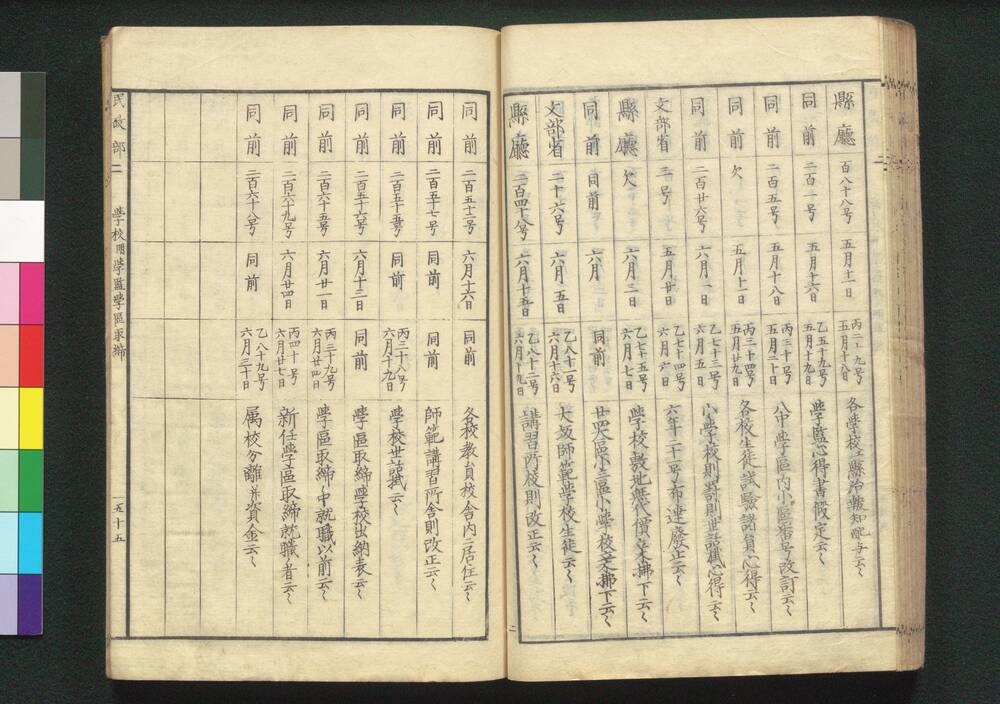 縣廳 百八十八号 五月十一日 五月十八日 各學校江縣治報知配与云〻
同前 二百一号 五月十六日 乙五十九号 五月十九日 學監心得書假定云〻
同前 二百五号 五月十八日 丙三十号 五月二十日 八中學區内小區番号改訂云〻
同前 欠 五月十一日 丙三十四号 五月廿九日 各校生徒試驗諸員心得云〻
同前 二百廿六号 六月一日 乙七十三号 六月五日 小學校則罸則世話掛心得云〻
文部省 二十号 五月廿日 乙七十四号 六月六日 六年二十二号布達廢正云〻
縣廳 欠 六月二日 乙七十五号 六月七日 學校敷地無代價 拂下云〻
同前 同前 六月 日 同前 廿四大區小三區小學校 拂下云〻
文部省 二十六号 六月五日 乙八十一号 六月十六日 大坂師範學校生徒云〻
縣廳 二百四十八号 六月十五日 乙八十二号 六月十九日 講習所校則改正云〻
同前 二百五十三号 六月十六日 同前 各校教員校舎内ニ居住云〻
同前 二百五十七号 同前 同前 師範講習所舎則改正云〻
同前 二百五十五号 同前 丙三十八号 六月十九日 學校世話掛云〻
同前 二百五十六号 六月十三日 同前 學區取締學校出納表云〻
同前 二百六十五号 六月廿一日 丙三十九号 六月廿四日 學區取締中就職以前云〻
同前 二百六十九号 六月廿四日 丙四十号 六月廿七日 新任學區取締就職ノ者云〻
同前 二百六十八号 同前 乙八十九号 六月三十日 属校分離并資金云〻
民政部二 學校用學監學區取締 一五十五